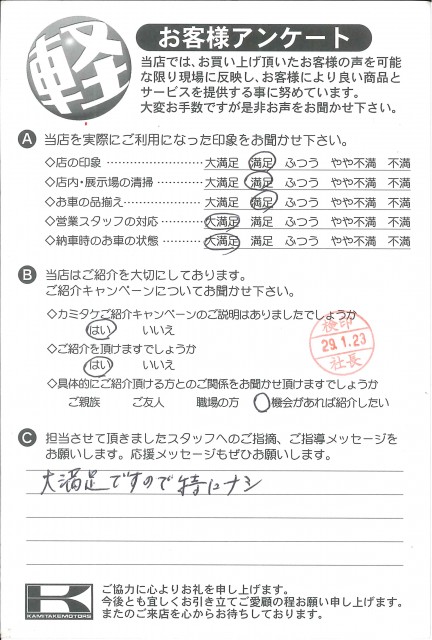 軽
お客様アンケート
当店では、お買い上げ頂いたお客様の声を可能
な限り現場に反映し、お客様により良い商品と
サービスを提供する事に努めています。
大変お手数ですが是非お声をお聞かせ下さい。
A 当店を実際にご利用になった印象をお聞かせ下さい。
◇店の印象 ‥‥‥‥‥‥‥‥ 大満足 満足 ふつう やや不満 不満
◇店内・展示場の清掃‥‥‥‥ 大満足 満足 ふつう やや不満 不満
◇お車の品揃え‥‥‥‥‥‥‥ 大満足 満足 ふつう やや不満 不満
◇営業スタッフの対応‥‥‥‥ 大満足 満足 ふつう やや不満 不満
◇納車時のお車の状態‥‥‥‥ 大満足 満足 ふつう やや不満 不満
B 当店はご紹介を大切にしております。
ご紹介キャンペーンについてお聞かせ下さい。
◇カミタケご紹介キャンペーンのご説明はありましたでしょうか
はい いいえ
◇ご紹介を頂けますでしょうか
はい いいえ
◇具体的にご紹介頂ける方とのご関係をお聞かせ頂けますでしょうか
ご親族 ご友人 職場の方 機会があれば紹介したい
検印
29.1.23
社長
C 担当させて頂きましたスタッフへのご指摘、ご指導メッセージを
お願いします。応援メッセージもぜひお願いします。
大満足ですので特にナシ
KAMITAKEMOTORS
ご協力に心よりお礼を申し上げます。
今後とも宜しくお引き立てご愛顧の程お願い申し上げます。
またのご来店を心からお待ちしております。